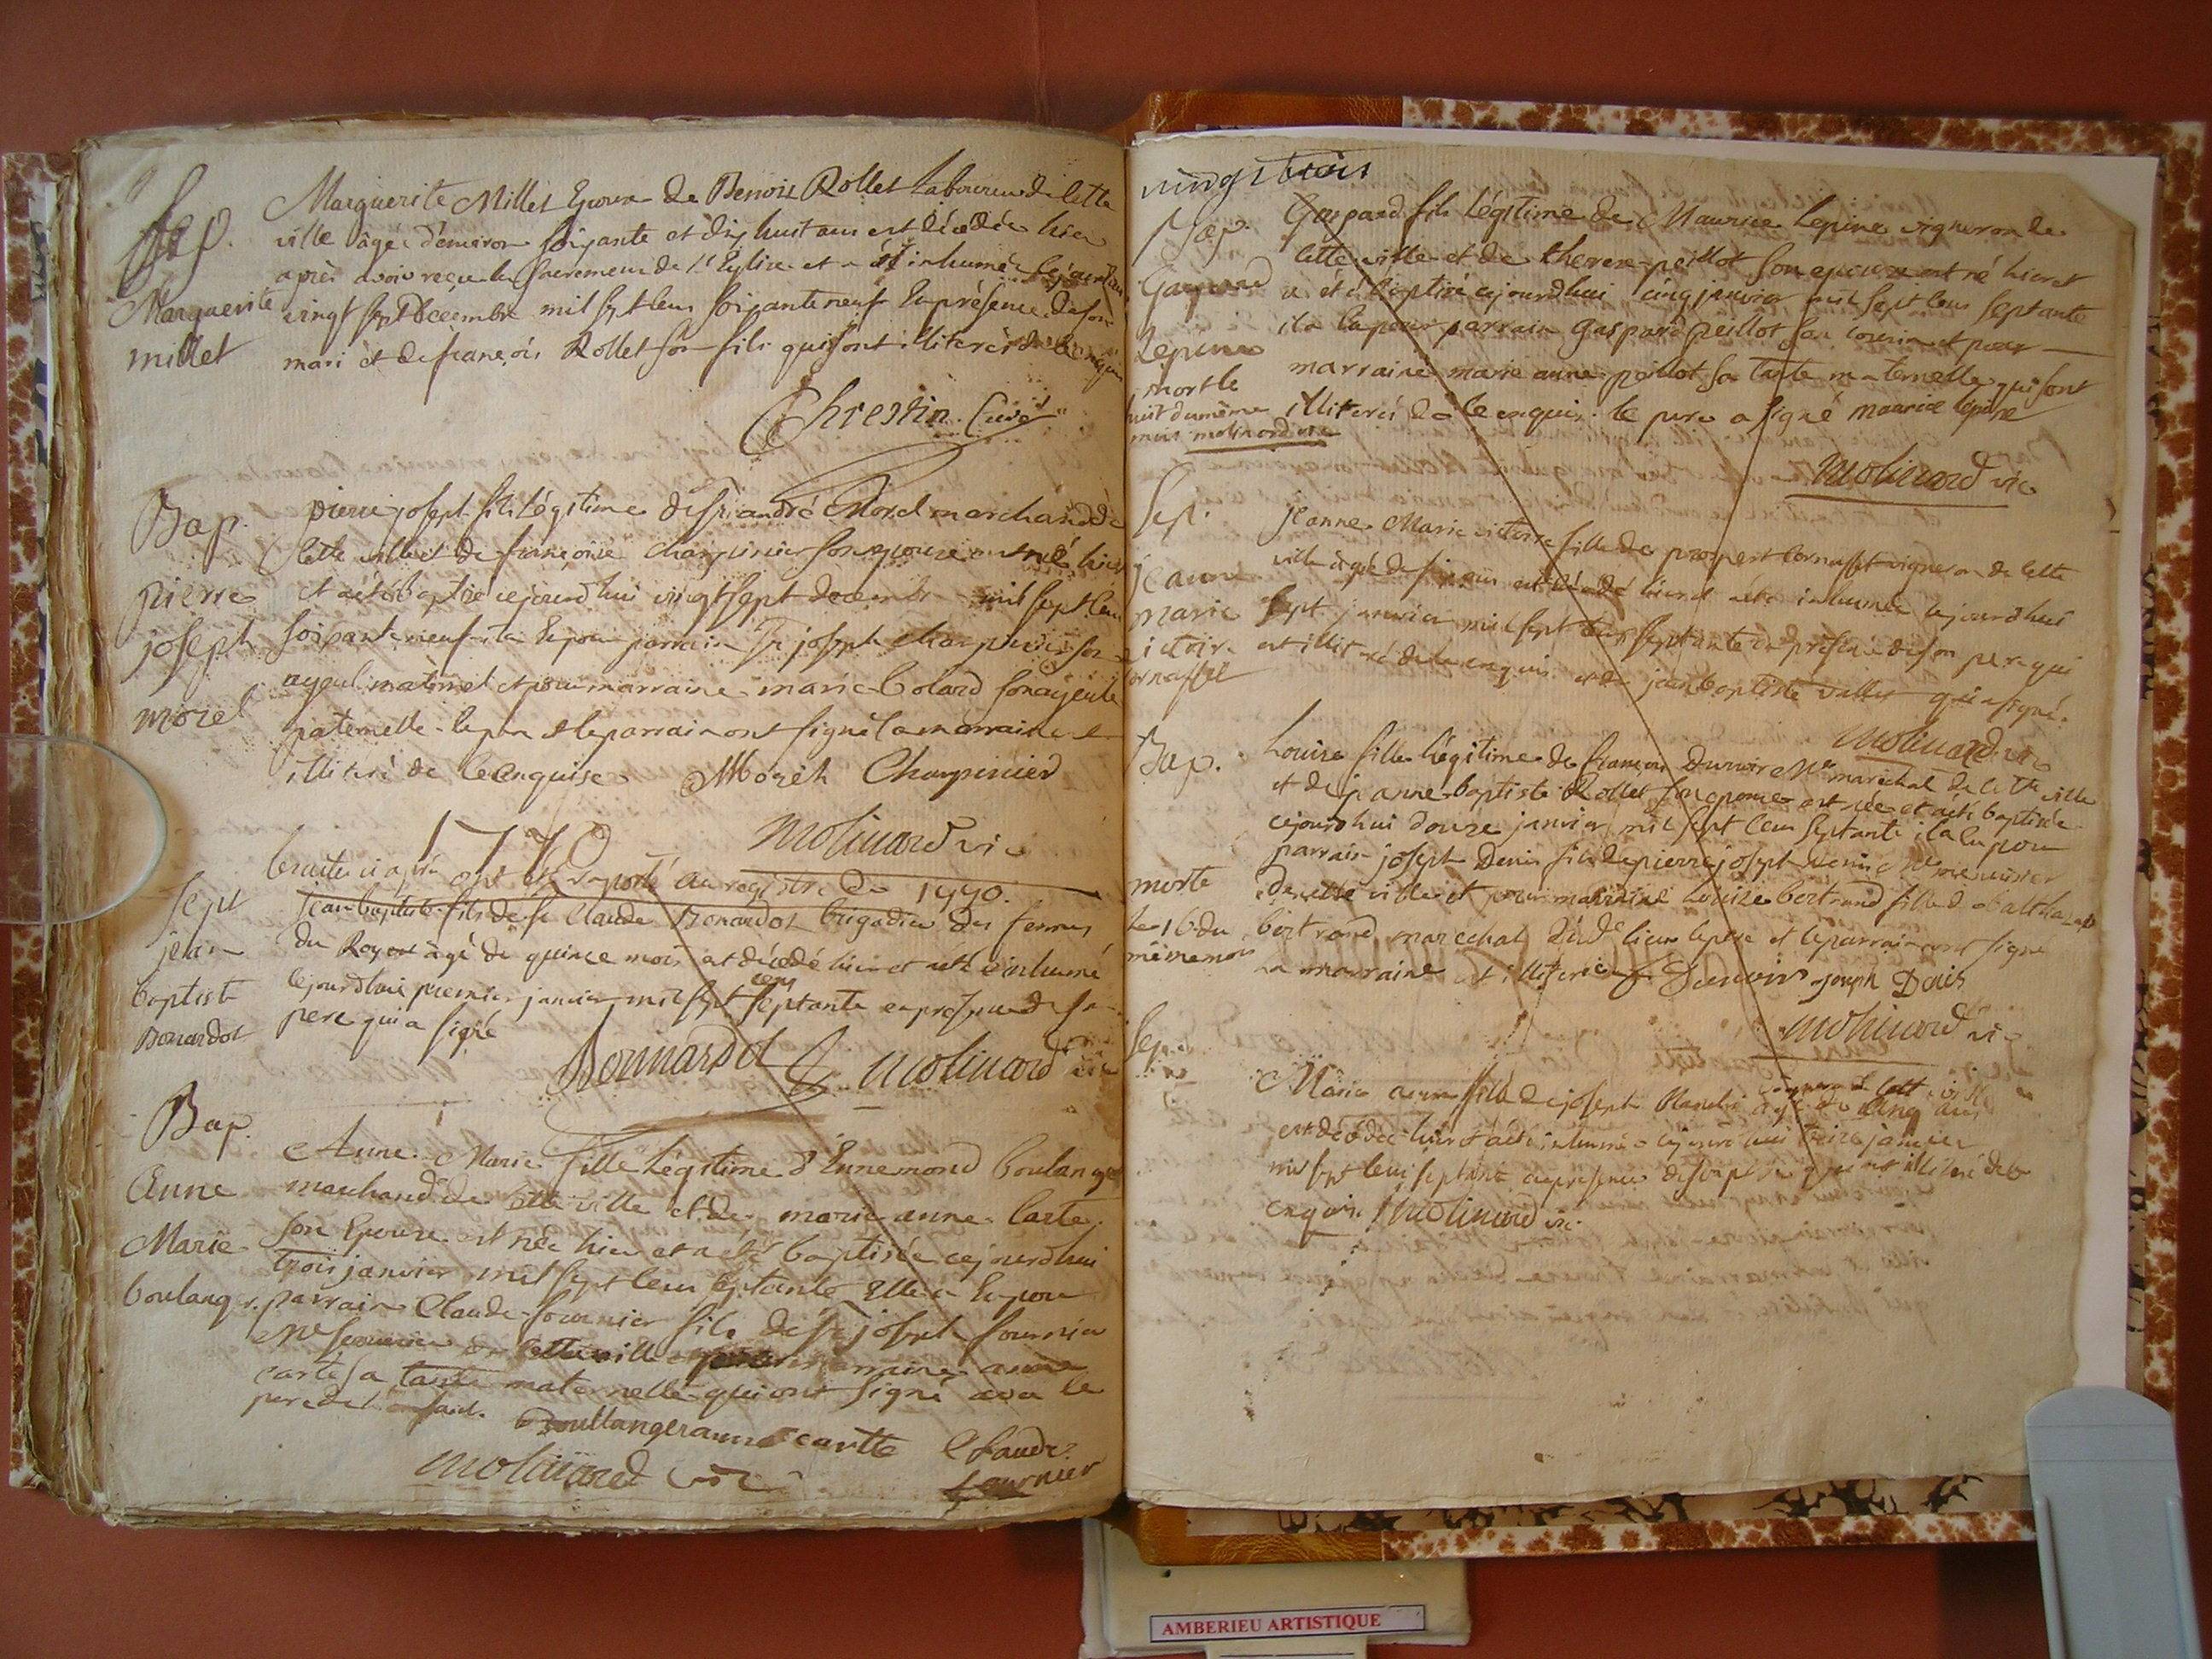 Sep.
Marguerite
millet
Marguerite Millet Epouse de Benoit Rollet Laboureur de cette
ville âgée d'environ soixante et dix huit ans est décédée hier
après avoir reçu les sacremens de l'Eglise et a été inhumée cejourd'hui
vingt sept Décembre mil sept cens soixante neuf En présence de son
mari et de françois Rollet son fils qui sont illiterés de ce enquis
Chrestin Curé
Bap.
pierre
joseph
morel
pierre joseph fils légitime de sr andré Morel marchand de
cette ville et de françoise charpinier son epouse est né hier
et a été baptisé cejourd'hui vingt sept decembre mil sept cens
soixante neuf il a Eu pour parrain Sr joseph charpinier son
ayeul maternel et pour marraine marie bolard son ayeule
paternelle le pere et le parrain ont signé la marraine
illiteré de ce enquise AMorel Charpinier
molinard vic
1770
les actes ci après ont été raporté au registre de 1770.
Sept
jean
baptiste
Bonardot
Jean baptiste fils de sr Claude Bonardot brigadier des fermes
du Roy âgé de quinze mois est décédé hier et a été inhumé
cejourdhui premier janvier mil sept cens septante en présence de son
pere qui a signé
Bonnardot molinard vic
Bap.
Anne
Marie
boulanger
Anne Marie fille Légitime d'Ennemond boulanger
marchand de cette ville et de marie anne Carte
son Epouse est née hier et a été baptisée cejourdhui
trois janvier mil sept cens septante Elle a Eu pour
parrain Claude fournier fils de sr joseph fournier
Me serrurier de cette ville et pour marraine anne
carte sa tante maternelle qui ont signé avec le
pere de l'enfant.
Boullanger anne cartte Claude
fournier
molinard vic
vingt trois
Bap.
Gaspard
Lepine
mort le
huit du même
mois molinard vic
Gaspard fils Légitime de Maurice Lepine vigneron de
cette ville et de therese peillot son epouse est né hier et
a été baptisé cejourdhui cinq janvier mil sept cens septante
il a Eu pour parrain gaspard peillot son cousin et pour
marraine marie anne peillot sa tante maternelle qui sont
illiterés de ce enquis. le pere a signé maurice lepine
molinard vic
Sep.
jeanne
marie
victoire
cornasset
jeanne Marie victoire fille de prospert cornasset vigneron de cette
ville âgée de six ans est décédé hier et a été inhumée cejourdhui
sept janvier mil sept cens septante en présence de son pere qui
est illiteré de ce enquis et de jean baptiste vallier qui a signé.
molinard vic
Bap.
morte
le 16 du
même mois
Louise fille légitime de françois Dunoir Me maréchal de cette ville
et de jeanne baptiste Rollet son epouse est née et a été baptisée
cejourdhui douze janvier mil sept cens septante il a Eu pour
parrain joseph Denis fils de pierre joseph Denis Me menuisier
de cette ville et pour marraine Louise bertrand fille de balthazard
bertrand marechal dud lieu le pere et le parrain ont signé
la marraine est illiteré joseph Denis
molinard vic
Sep.
Marie anne fille de joseph vigneron de cette ville
âgée de cinq ans
est décédée hier et a été inhumée cejourd'hui treize janvier
mil sept cens septante en présence de son pere qui est illiteré de ce
enquis. molinard vic.
AMBERIEU ARTISTIQUE